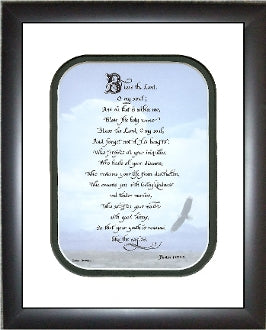 Bless the Lord,
O my soul;
And all that is within me,
Bless His holy name!
Bless the Lord, O my soul,
And forget not all His benefits:
Who forgives all your iniquities,
Who heals all your diseases,
Who redeems your life from destruction,
Who crowns you with lovingkindness
and tender mercies,
Who satisfies your mouth
with good things,
So that your youth is renewed
like the eagle's.
Psalm 103:1-5